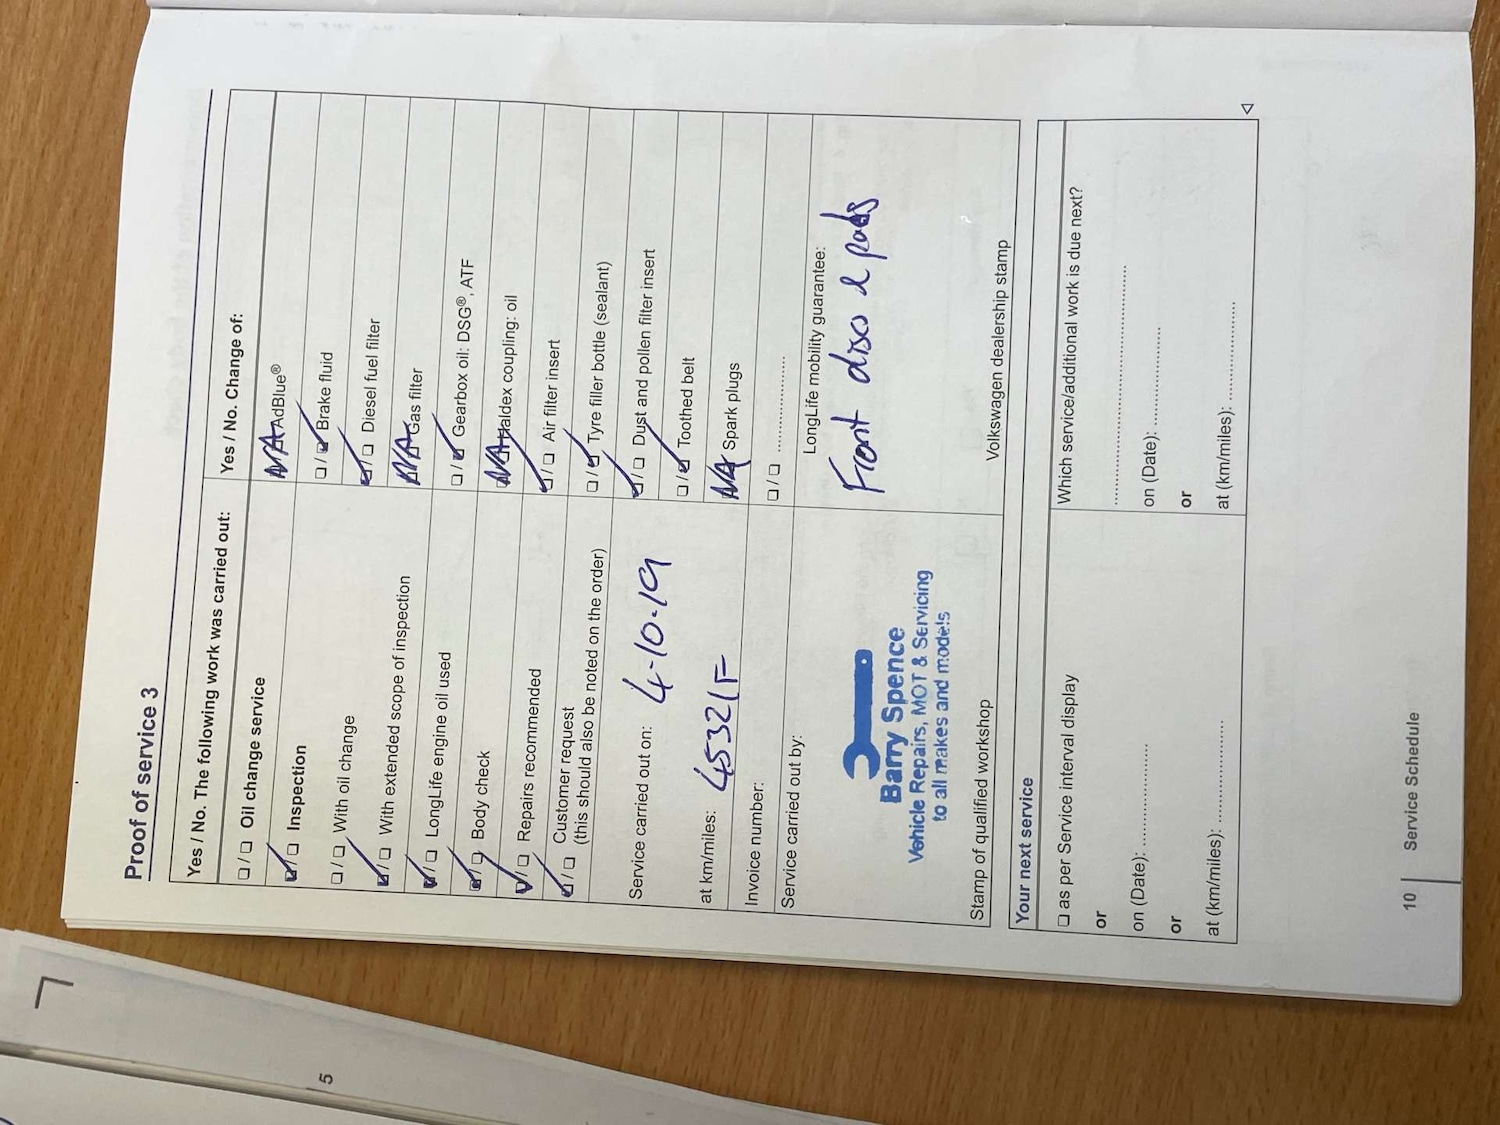 Proof of service 3
Yes / No. The following work was carried out:
Oil change service
Inspection
With oil change
With extended scope of inspection
LongLife engine oil used
Body check
Repairs recommended
Customer request
(this should also be noted on the order)
Service carried out on: 4-10-19
at km/miles: 45321
Invoice number:
Service carried out by:
Barry Spence
Vehicle Repairs, MOT & Servicing
to all makes and models
Stamp of qualified workshop
Yes / No. Change of:
N/A AdBlue®
Brake fluid
Diesel fuel filter
N/A Gas filter
Gearbox oil: DSG®, ATF
N/A Haldex coupling: oil
Air filter insert
Tyre filler bottle (sealant)
Dust and pollen filter insert
Toothed belt
N/A Spark plugs
LongLife mobility guarantee:
Front discs & pads
Volkswagen dealership stamp
Your next service
as per Service interval display
or
on (Date):
or
at (km/miles):
Which service/additional work is due next?
on (Date):
or
at (km/miles):
10 Service Schedule
5